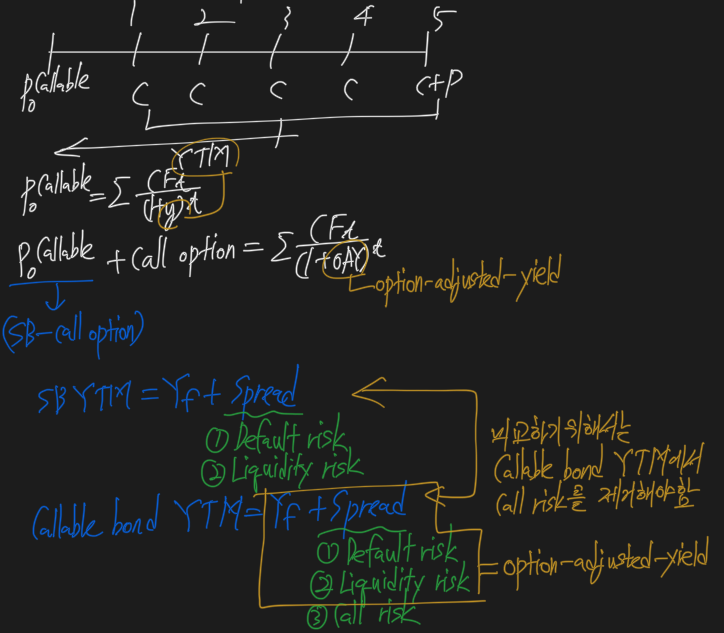 1 2 3 4 5
P₀ Callable C C C C C+P
YTM
P₀ Callable = Σ CFt / (1+y)^t
P₀ Callable + Call option = Σ CFt / (1+OAY)^t
option-adjusted-yield
(SB-Call option)
SB YTM = Yf + Spread
① Default risk
② Liquidity risk
비교하기 위해서는
Callable bond YTM에서
Call risk를 제거해야함
Callable bond YTM = Yf + Spread
① Default risk
② Liquidity risk
③ Call risk
= option-adjusted-yield